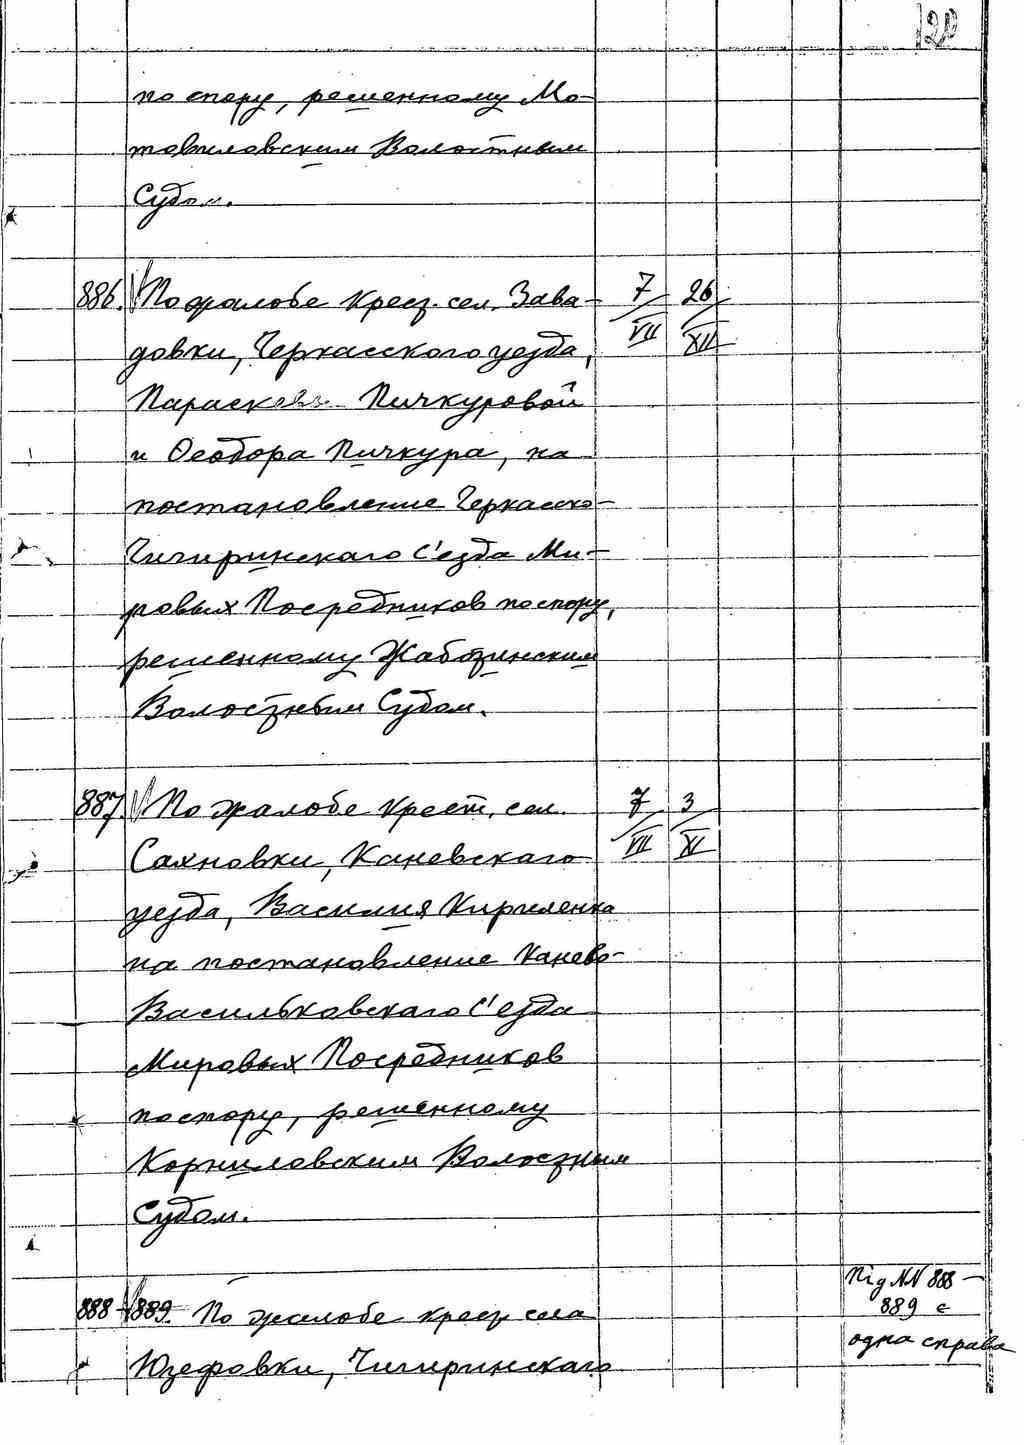 120
по спору, решенному Мо-
товиловским Волостным
Судом.
886. По жалобе крест. сел. Зава- 7/VII 26/XII
довки, Черкасского уезда,
Параскевы Пичкуровой
и Феодора Пичкура, на
постановление Черкасско-
Чигиринскаго С'езда Ми-
ровых Посредников по спору,
решенному Жаботинским
Волостным Судом.
887. По жалобе крест. сел. 7/VII 3/XI
Сахновки, Каневскаго
уезда, Василия Кириленка
на постановление Канево-
Васильковскаго С'езда
Мировых Посредников
по спору, решенному
Корниловским Волостным
Судом.
888-889. По жалобе крест. села
Юзефовки, Чигиринскаго
Під NN 888-
889 є
одна справа